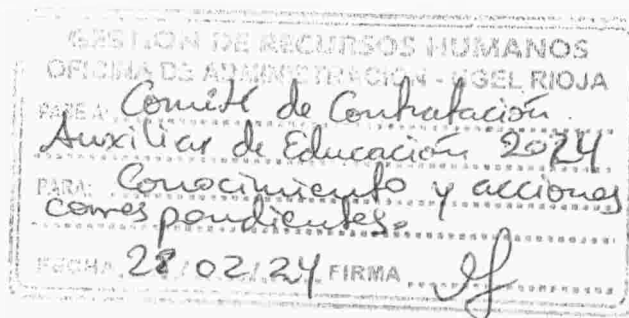 GESTION DE RECURSOS HUMANOS
OFICINA DE ADMINISTRACIÓN - UGEL RIOJA
PASE A: Comité de Contratación
Auxiliar de Educación 2024
PARA: Conocimiento y acciones
correspondientes.
FECHA 28/02/24 FIRMA